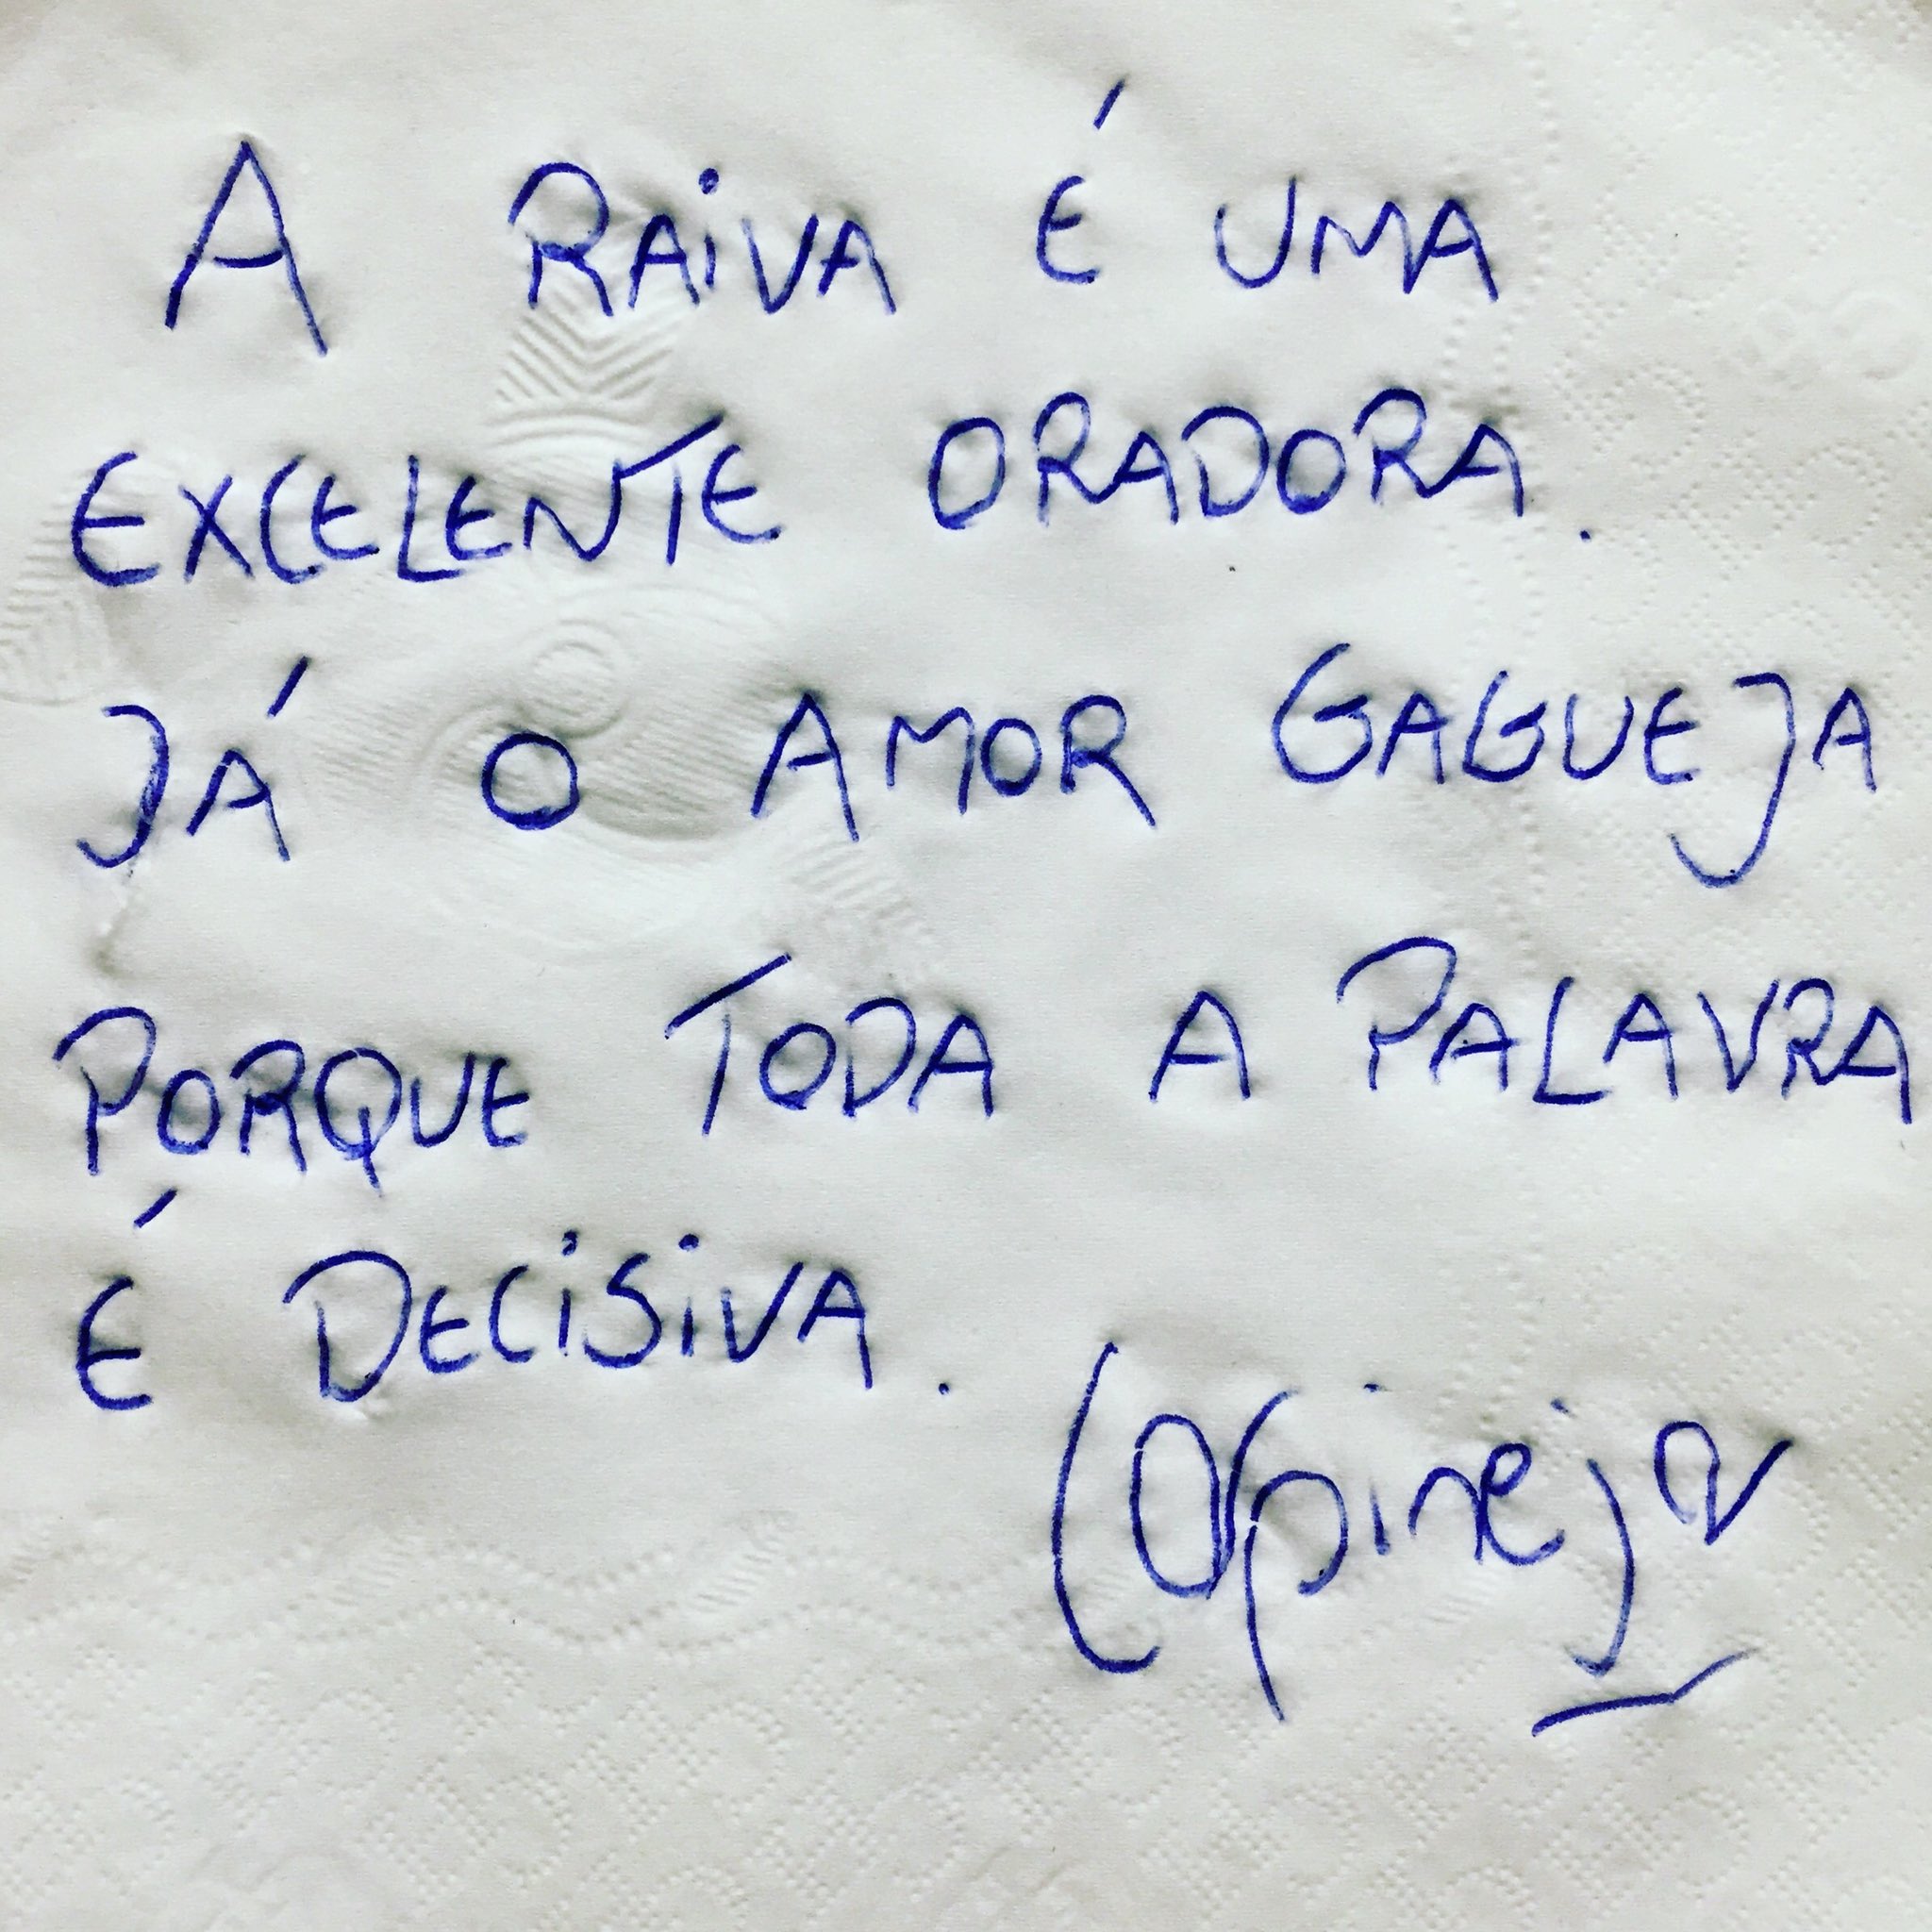 A RAIVA É UMA
EXCELENTE ORADORA.
JÁ O AMOR GAGUEJA
PORQUE TODA A PALAVRA
É DECISIVA.
Carpinejar